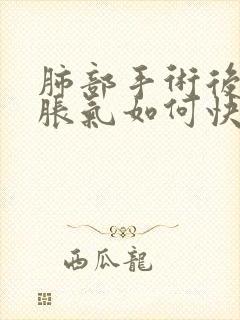 肺部手術後
脹氣如何快
西瓜龍